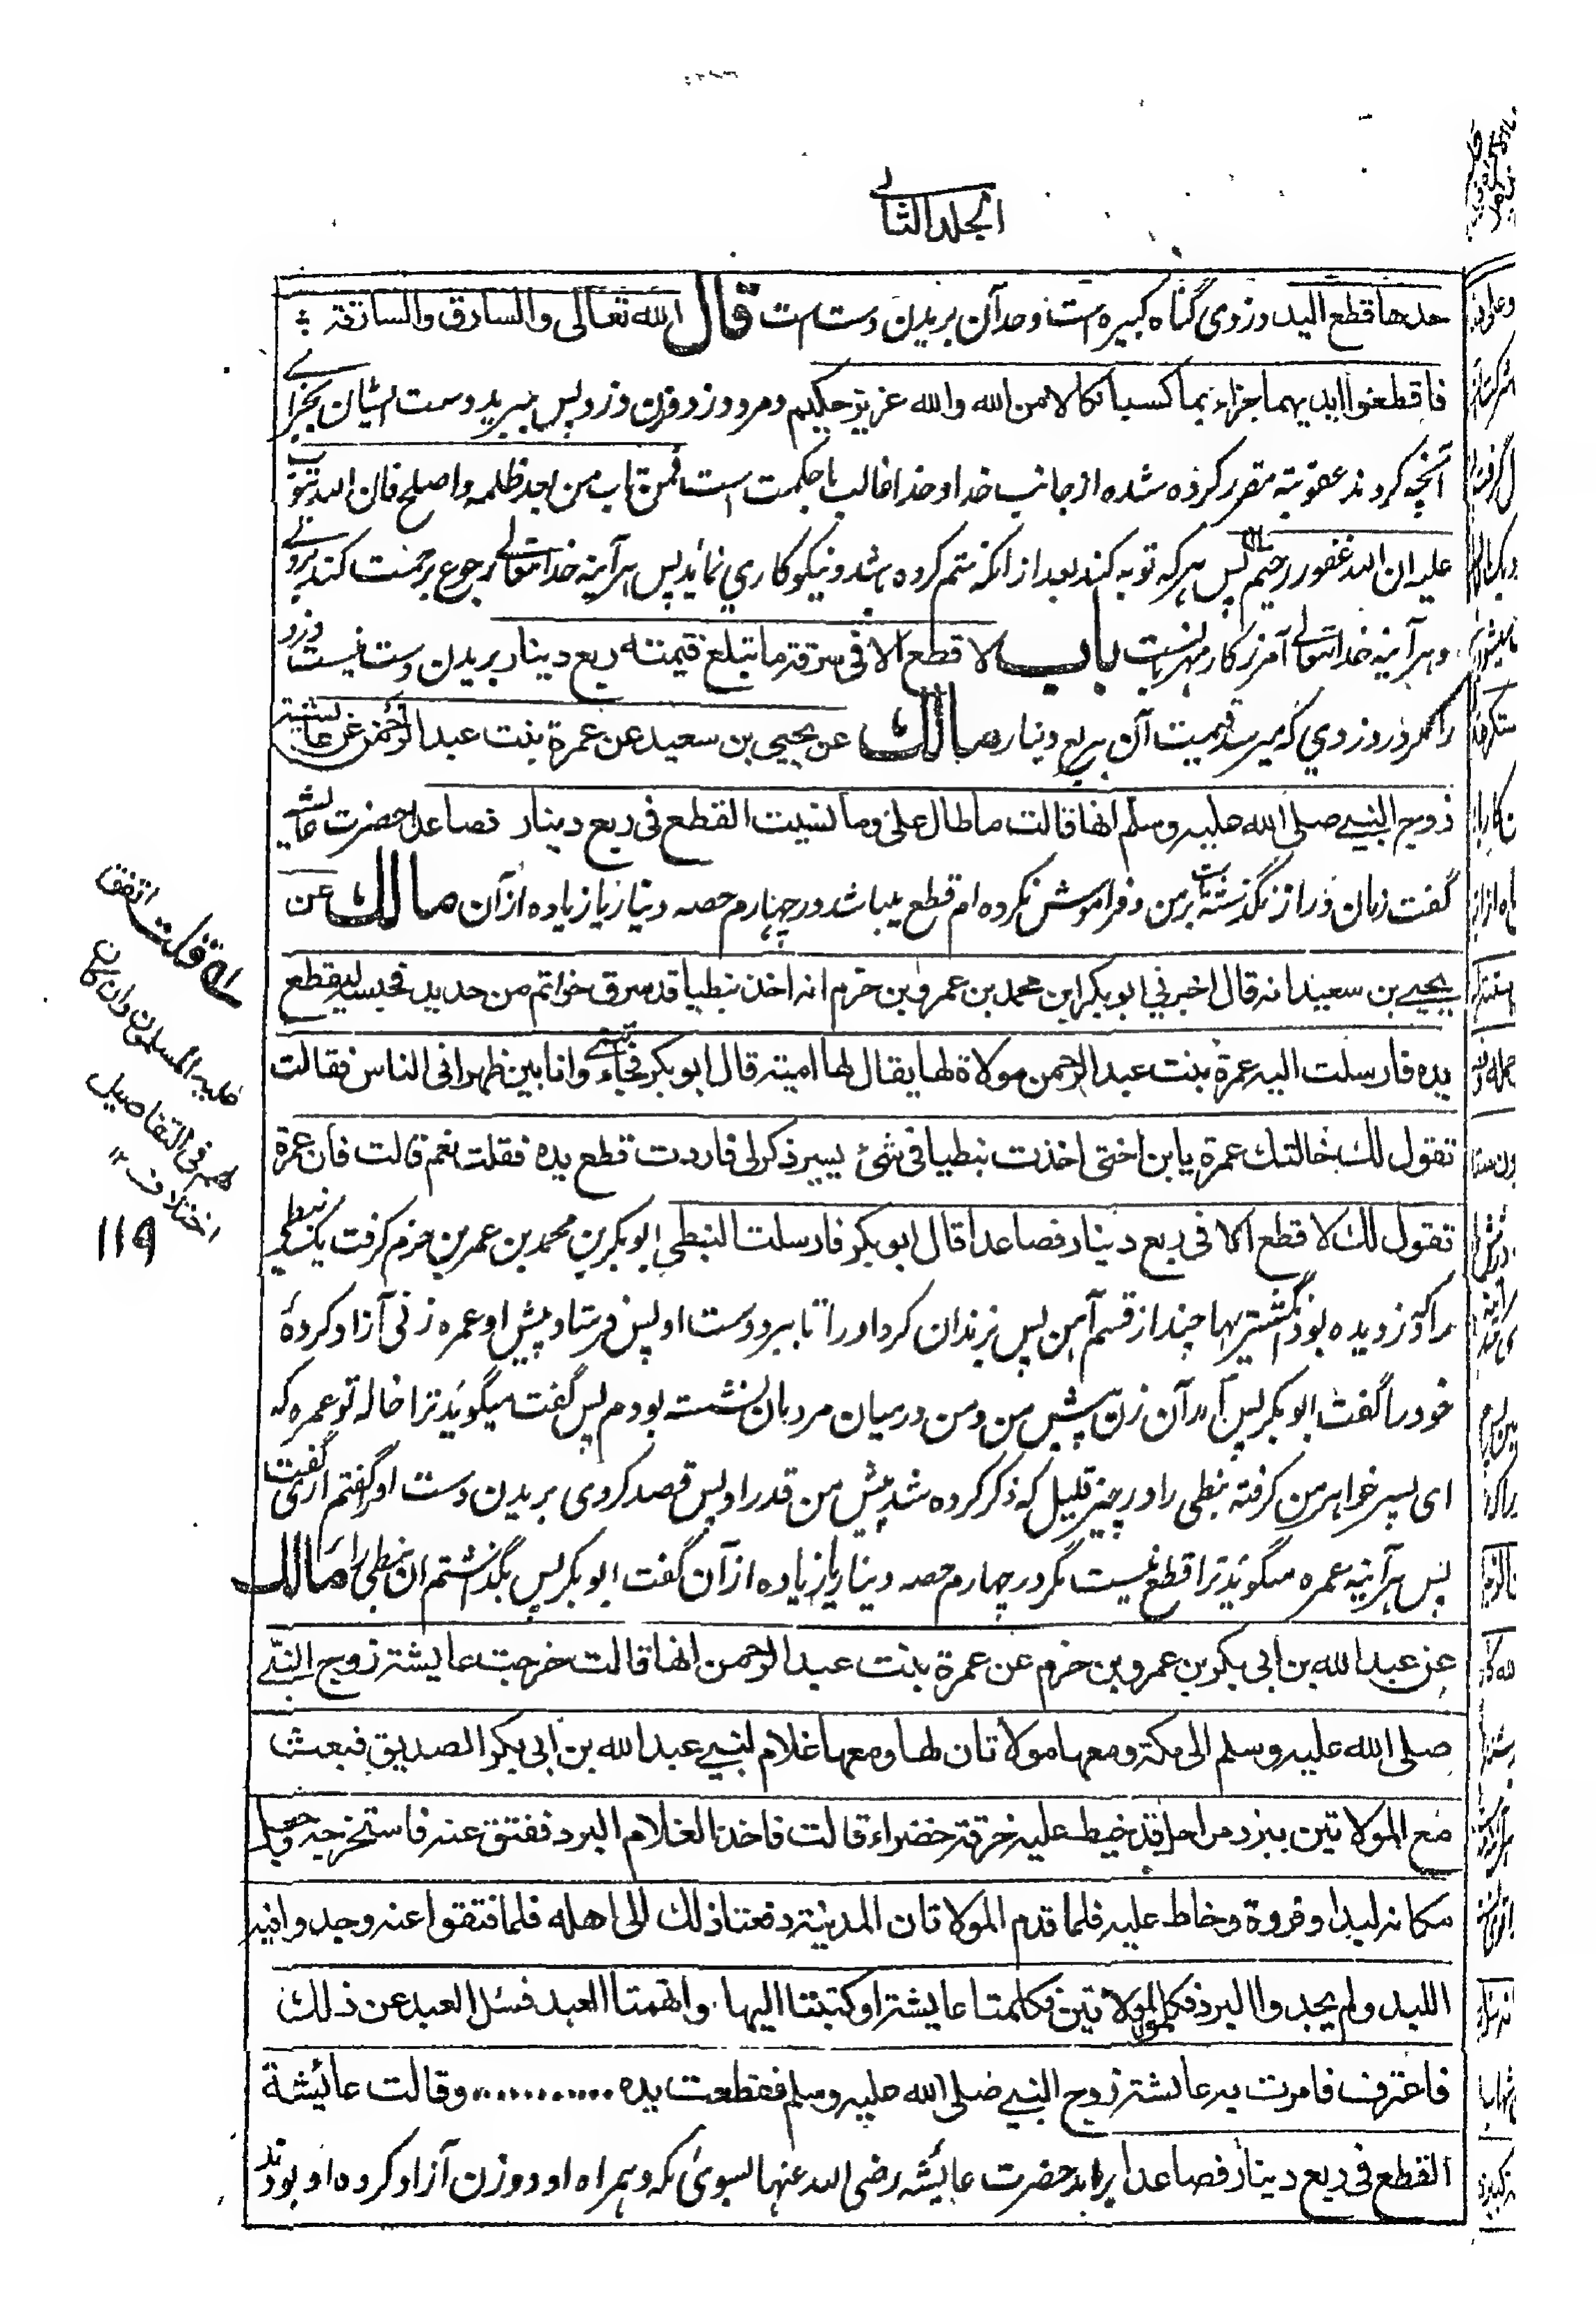 المجلد الثانی
حدها قطع الید دزدی گناه کبیره است و حد آن بریدن دست است قال الله تعالی والسارق والسارقة
فاقطعوا ایدیهما جزاء بما کسبا نکالا من الله والله عزیز حکیم و مرد دزد و زن دزد پس ببرید دست ایشان بجزای
آنچه کردند عقوبته مقرر کرده شده از جانب خدا و خدا غالب با حکمت است فمن تاب من بعد ظلمه واصلح فان الله یتوب
علیه ان الله غفور رحیم پس هر که توبه کند بعد از انکه ستم کرده باشد و نیکوکاری نماید پس هر آینه خدا تعالی رجوع برحمت کند بروی
و هر آینه خدا تعالی آمرزگار مهربانست باب لا قطع الا فی سرقة ما تبلغ قیمته ربع دینار بریدن دست نیست دزد
را مگر در دزدی که میرسد قیمت آن بربع دینار مالك عن یحیی بن سعید عن عمرة بنت عبد الرحمن عن عایشة
زوج النبی صلی الله علیه وسلم انها قالت ما طال علی وما نسیت القطع فی ربع دینار فصاعدا حضرت عایشه
گفت زمان دراز نگذشته است بر من و فراموش نکرده ام قطع میباشد در چهارم حصه دینار یا زیاده از آن مالك عن
یحیی بن سعید انه قال اخبرنی ابو بکر ابن محمد بن عمرو بن حزم انه اخذ نبطیا قد سرق خواتم من حدید فحبسه لیقطع
یده فارسلت الیه عمرة بنت عبد الرحمن مولاة لها یقال لها امیة قال ابو بکر فجاءتنی وانا بین ظهرانی الناس فقالت
تقول لك خالتك عمرة یا بن اختی اخذت نبطیا فی شئ یسیر ذکر لی فاردت قطع یده فقلت نعم قالت فان عمرة
تقول لك لا قطع الا فی ربع دینار فصاعدا قال ابو بکر فارسلت النبطی ابو بکر بن محمد بن عمر بن حزم گرفت یک نبطی
را که دزدیده بود انگشتریها چند از قسم آهن پس بزندان کرد او را تا ببرد دست او پس فرستاد پیش او عمره زنی آزاد کردهٔ
خود را گفت ابو بکر پس آمد آن زن پیش من و من در میان مردمان نشسته بودم پس گفت میگوید ترا خاله تو عمره که
ای پسر خواهر من گرفته نبطی را در چیز قلیل که ذکر کرده شد پیش من قدر او پس قصد کردی بریدن دست او را گفتم اری گفت
پس هر آینه عمره میگوید ترا قطع نیست مگر در چهارم حصه دینار یا زیاده از آن گفت ابو بکر پس بگذاشتم ان نبطی را مالك
عن عبد الله بن ابی بکر بن عمرو بن حزم عن عمرة بنت عبد الرحمن انها قالت خرجت عایشة زوج النبی
صلی الله علیه وسلم الی مکة ومعها مولاتان لها ومعها غلام لبنی عبد الله بن ابی بکر الصدیق فبعث
مع المولاتین ببرد مراجل قد خیط علیه خرقة خضراء قالت فاخذ الغلام البرد ففتق عنه فاستخرجه وجعل
مکانه لبدا او فروة وخاط علیه فلما قدم المولاتان المدینة دفعتا ذلك الی اهله فلما فتقوا عنه وجدوا فیه
اللبد ولم یجدوا البرد فکلموا المولاتین فکلمتا عایشة او کتبتا الیها واتهمتا العبد فسئل العبد عن ذلك
فاعترف فامرت به عائشة زوج النبی صلی الله علیه وسلم فقطعت یده ........... وقالت عائیشة
القطع فی ربع دینار فصاعدا برامد حضرت عائیشه رضی الله عنها بسوئی مکه و همراه او دو زن آزاد کرده او بودند
له قلت اتفق
علیه المسلمون وان کان
لهم فی التفاصیل
اختلاف ۱۲
۱۱۹